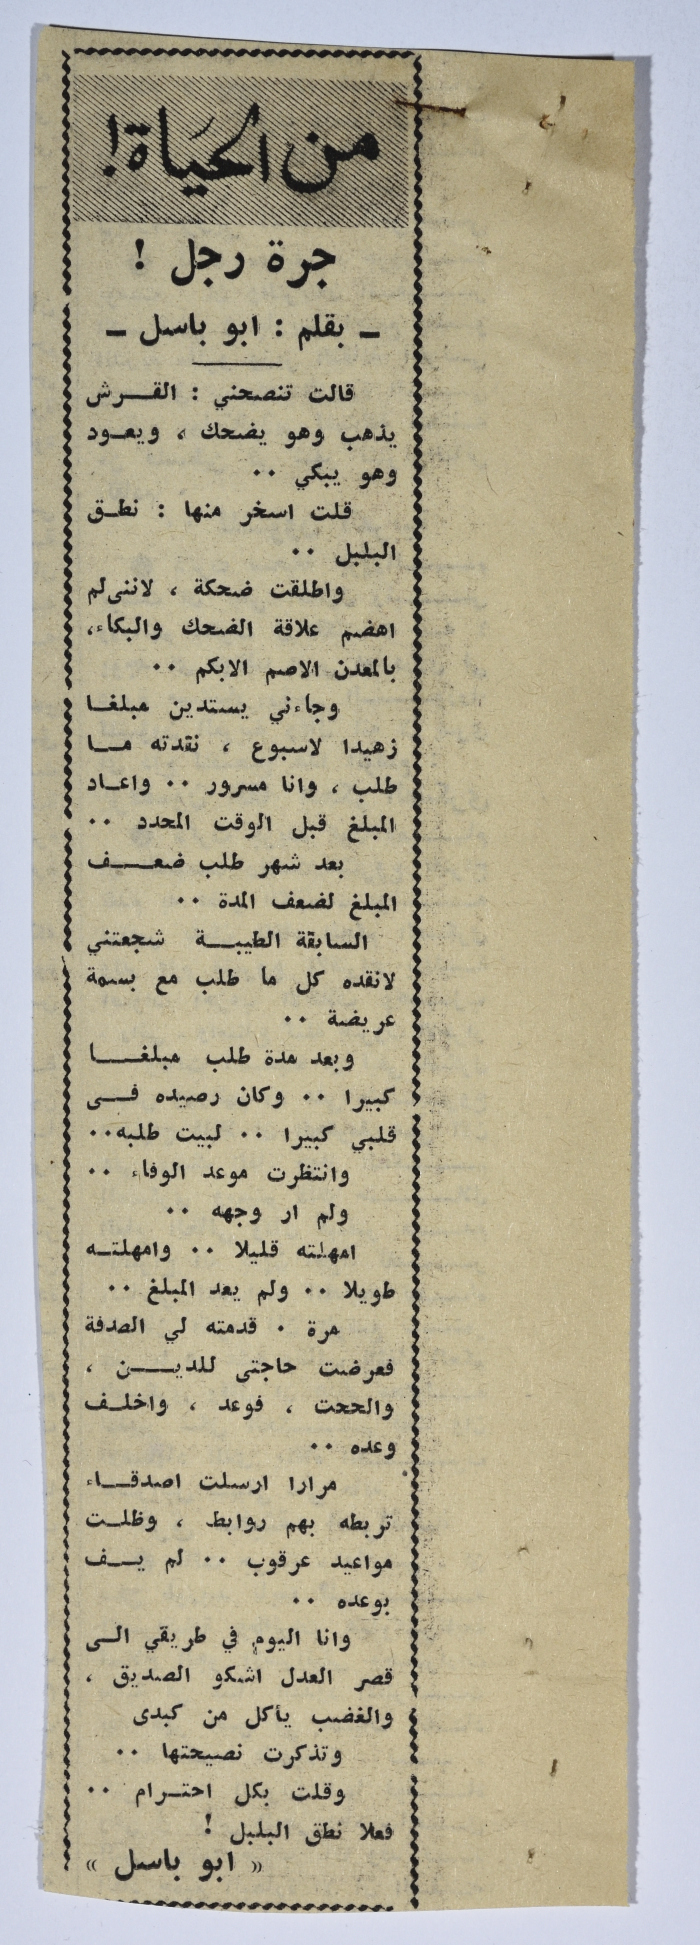 من الحياة!
جرة رجل !
ـ بقلم : ابو باسل ـ
قالت تنصحني : القرش
يذهب وهو يضحك ، ويعود
وهو يبكي ..
قلت اسخر منها : نطق
البلبل ..
واطلقت ضحكة ، لاننى لم
اهضم علاقة الضحك والبكاء،
بالمعدن الاصم الابكم ..
وجاءني يستدين مبلغا
زهيدا لاسبوع ، نقدته ما
طلب ، وانا مسرور .. واعاد
المبلغ قبل الوقت المحدد ..
بعد شهر طلب ضعف
المبلغ لضعف المدة ..
السابقة الطيبة شجعتني
لانقده كل ما طلب مع بسمة
عريضة ..
وبعد مدة طلب مبلغا
كبيرا .. وكان رصيده فى
قلبي كبيرا .. لبيت طلبه..
وانتظرت موعد الوفاء ..
ولم ار وجهه ..
امهلته قليلا .. وامهلته
طويلا .. ولم يعد المبلغ ..
مرة . قدمته لي الصدفة
فعرضت حاجتى للدين ،
والححت ، فوعد ، واخلف
وعده ..
مرارا ارسلت اصدقاء
تربطه بهم روابط ، وظلت
مواعيد عرقوب .. لم يف
بوعده ..
وانا اليوم في طريقي الى
قصر العدل اشكو الصديق ،
والغضب يأكل من كبدى
وتذكرت نصيحتها ..
وقلت بكل احترام ..
فعلا نطق البلبل !
« ابو باسل »